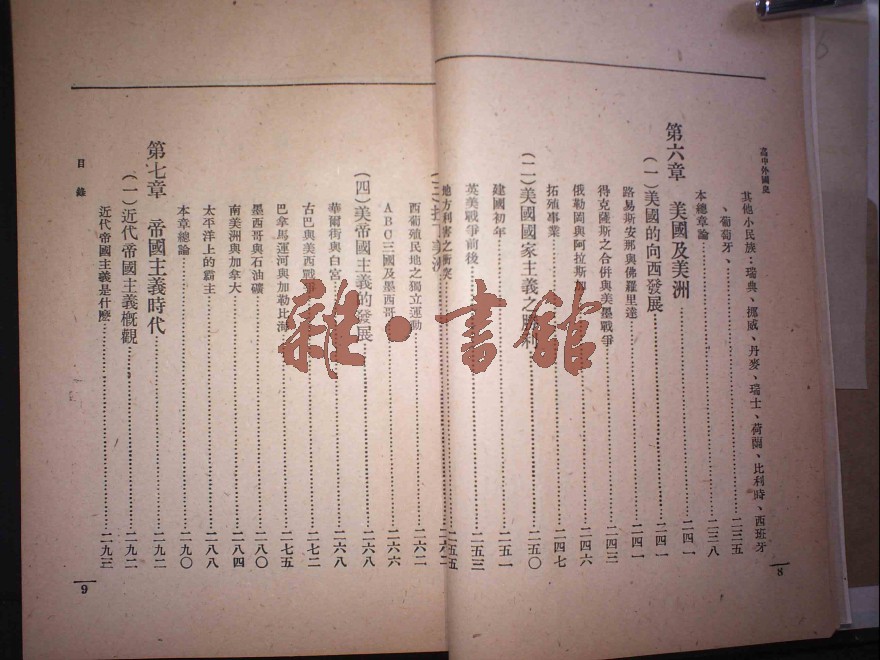 高中外國史
其他小民族：瑞典、挪威、丹麥、瑞士、荷蘭、比利時、西班牙
、葡萄牙、……二三五
本總章論……二三八
第六章 美國及美洲……二四一
（一）美國的向西發展……二四一
路易斯安那與佛羅里達……二四一
得克薩斯之合併與美墨戰爭……二四三
俄勒岡與阿拉斯加……二四六
拓殖事業……二四七
（二）美國國家主義之勝利……二五〇
建國初年……二五一
英美戰爭前後……二五三
地方利害之衝突……二五五
（三）美洲……二六二
西葡殖民地之獨立運動……二六二
ABC三國及墨西哥……二六六
（四）美帝國主義的發展……二六八
華爾街與白宮……二六八
古巴與美西戰爭……二七二
巴拿馬運河與加勒比海……二七五
墨西哥與石油礦……二八〇
南美洲與加拿大……二八四
太平洋上的霸主……二八八
本章總論……二九〇
第七章 帝國主義時代……二九二
（一）近代帝國主義概觀……二九二
近代帝國主義是什麼……二九三
目錄
8
9
雜·書館